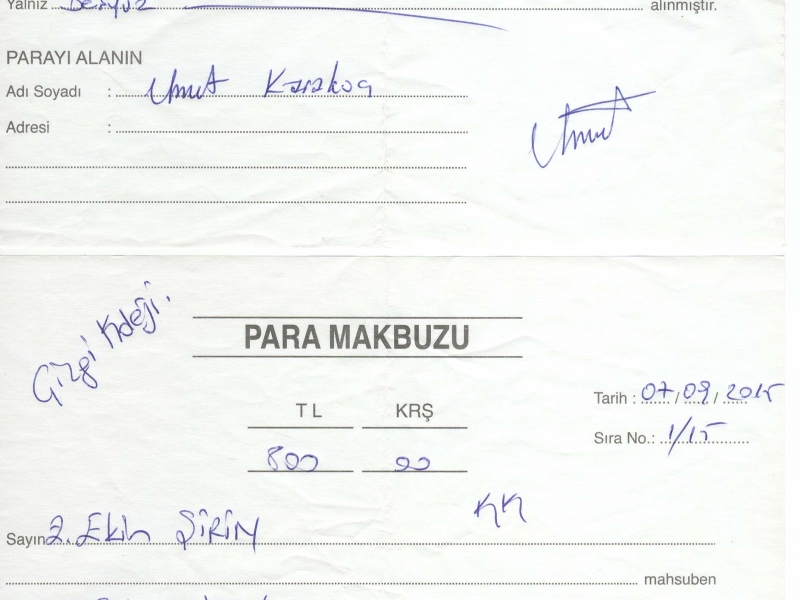 Yalnız Beşyüz alınmıştır.
PARAYI ALANIN
Adı Soyadı : Umut Karakoç
Adresi :
Umut
Çizgi Kdeği.
PARA MAKBUZU
TL KRŞ
Tarih : 07/09/2015
Sıra No.: 1/15
800 00
KK
Sayın 2. Ekin ŞİRİN
mahsuben